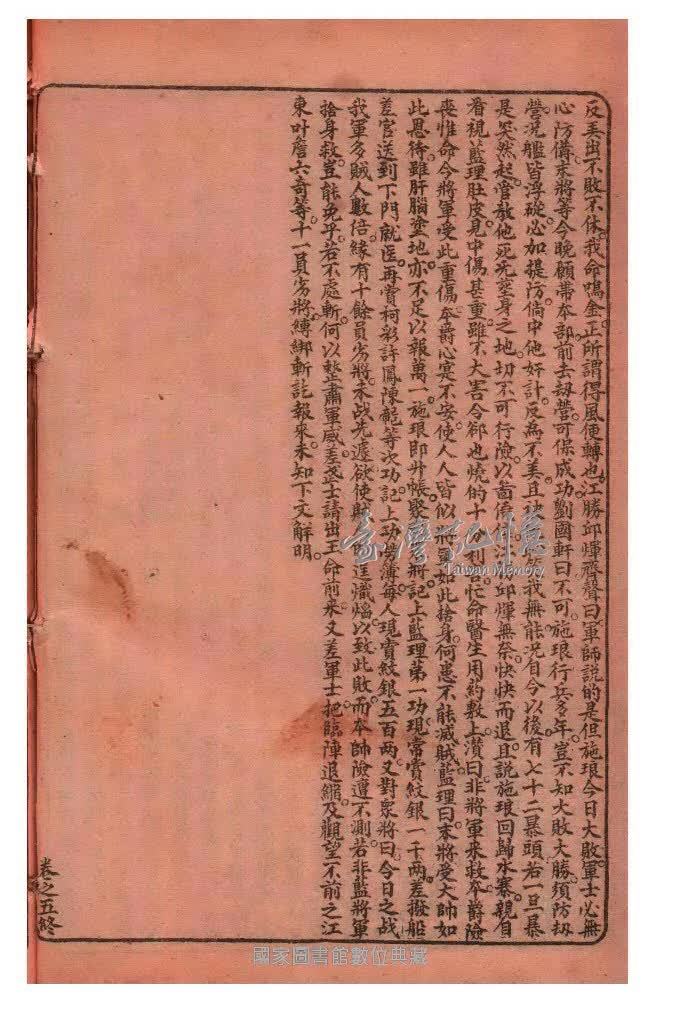 反丢出不敗不休我命鳴金正所謂得風便轉也江勝邱煇齊聲曰軍師說的是但施琅今日大敗軍士必無
心防備末將等今晚願帶本部前去刼營可保成功劉國軒曰不可施琅行兵多年豈不知大敗大勝須防刼
營況艦皆浮碇必加提防倘中他奸計反為不美且 我無能況自今以後有七十二暴頭若一旦暴
是突然起管教他死無塟身之地切不可行險以 邱煇無奈怏怏而退且說施琅回歸水寨親自
看視藍理肚皮見中傷甚重雖不大害令郤也燒的十分利害忙命醫生用葯敷上讚曰非將軍来救夲爵險
喪惟命令將軍受此重傷夲爵心寔不安使人人皆似將軍如此捨身何患不能滅賊藍理曰末將受大帥如
此恩待雖肝腦塗地亦不足以報萬一施琅即升帳聚 將記上藍理第一功現常賞紋銀一千两差撥船
差官送到下門就医再賞 彩許鳳陳 等次功記上功 簿每人現賞紋銀五百两又對衆將曰今日之战
我軍多賊人數倍緣有十餘員劣將未战先遽欲使 熾 以致此敗而本帥險遭不測若非藍將軍
捨身救豈能免乎若不處斬何以整肅軍威差 士請出王命前来又差軍士把臨陣退縮及觀望不前之江
東叶詹六竒等十一員劣將縛綁斬訖報來未知下文解明
卷之五終
臺灣記憶
Taiwan Memory
國家圖書館數位典藏